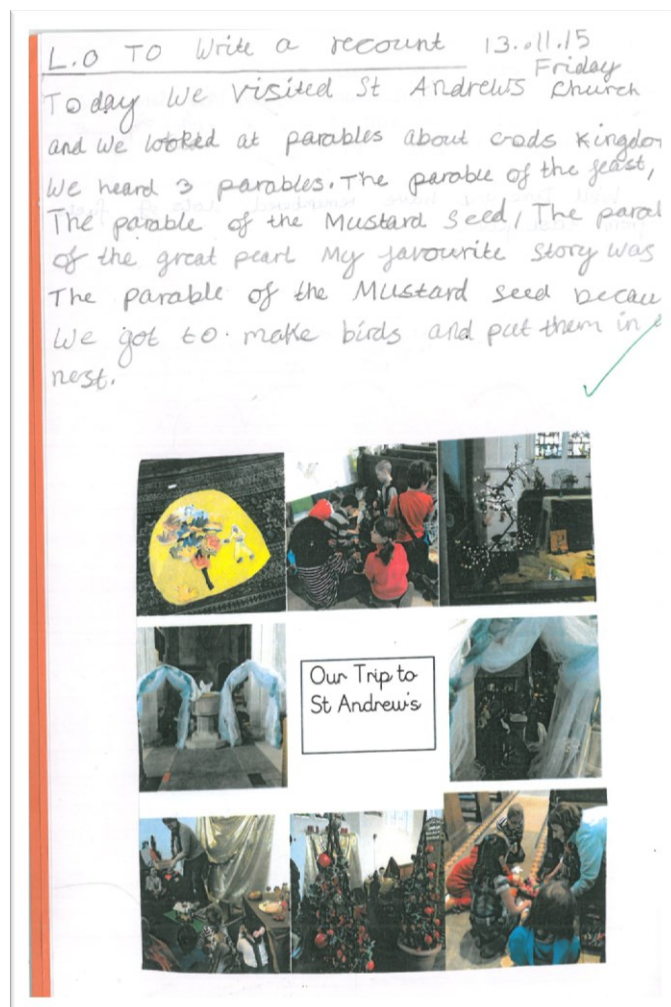 L.O TO Write a recount 13.11.15
Friday
Today We visited St Andrews Church
and we looked at parables about Gods Kingdom
We heard 3 parables. The parable of the feast,
The parable of the Mustard seed, The parab
of the great pearl My favourite story was
The parable of the Mustard seed becau
We got to make birds and put them in
nest.
Our Trip to
St Andrew's